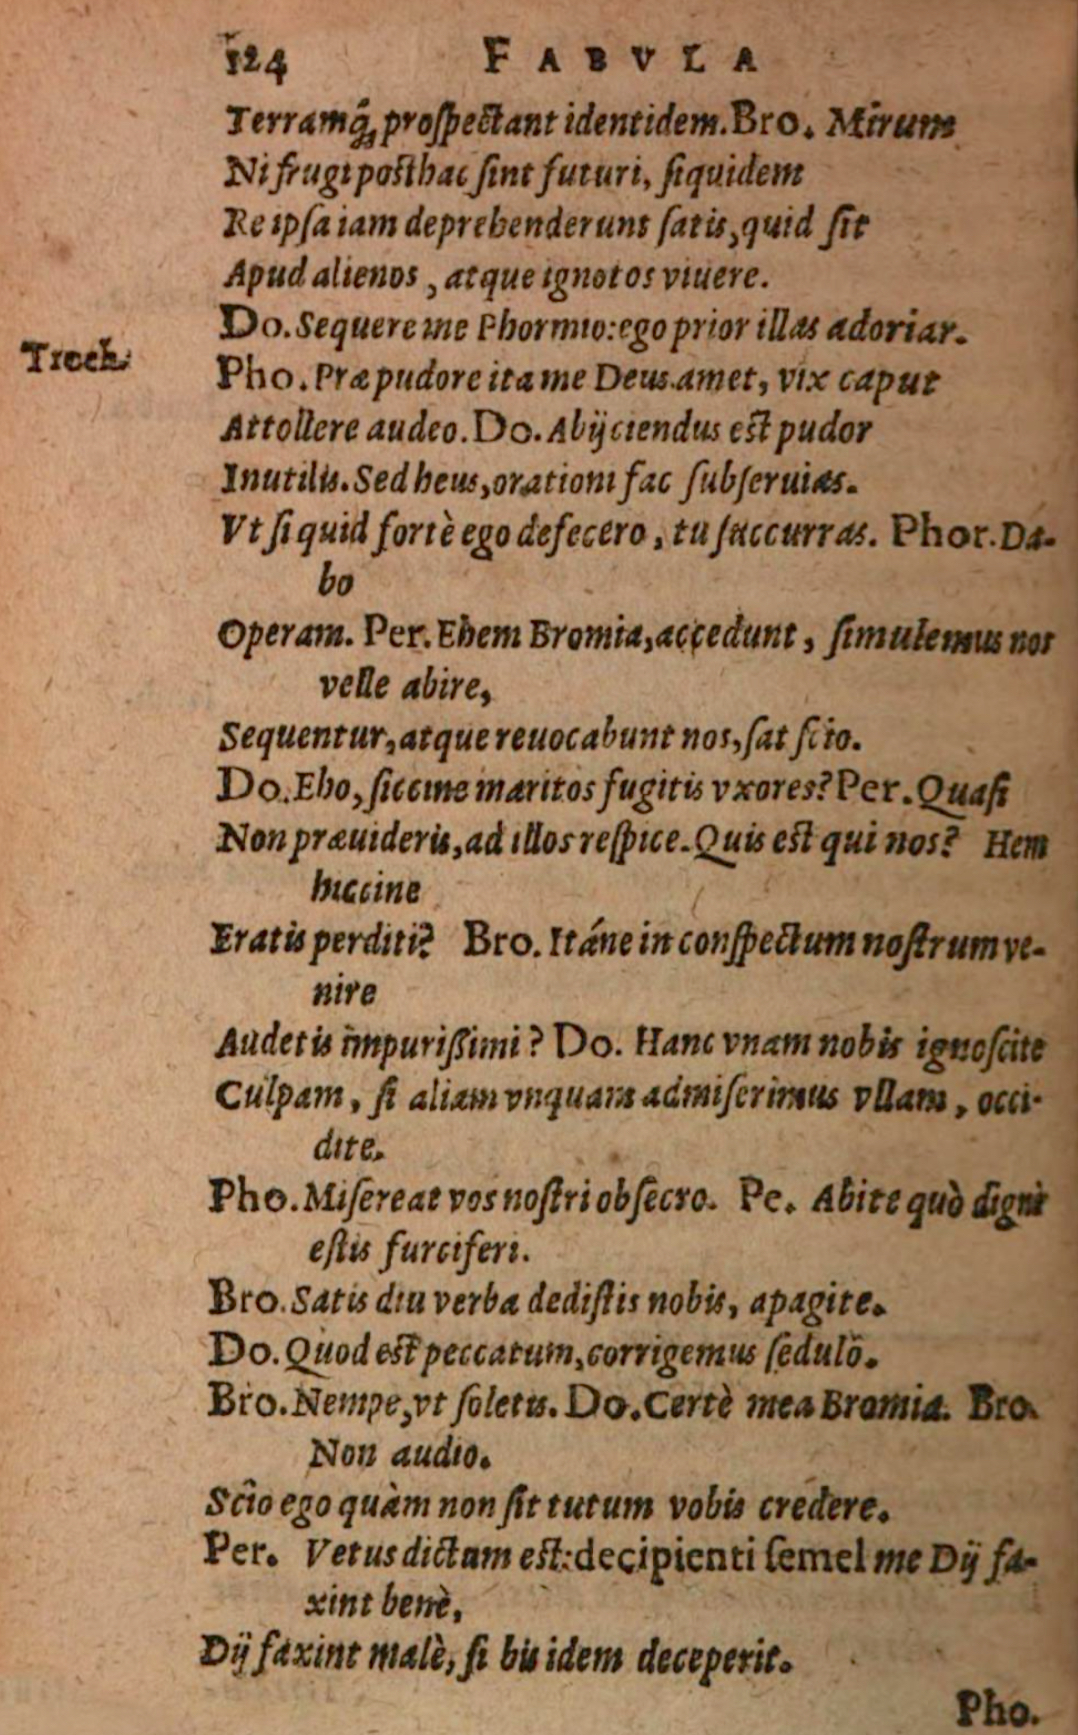 124 FABVLA
Terramq́; prospectant identidem. Bro. Mirum
Ni frugi posthac sint futuri, siquidem
Re ipsa iam deprehenderunt satis, quid sit
Apud alienos, atque ignotos viuere.
Do. Sequere me Phormio: ego prior illas adoriar.
Troch.
Pho. Præ pudore ita me Deus amet, vix caput
Attollere audeo. Do. Abijciendus est pudor
Inutilis. Sed heus, orationi fac subseruias.
Vt si quid fortè ego defecero, tu succurras. Phor. Da-
bo
Operam. Per. Ehem Bromia, accedunt, simulemus nos
velle abire,
Sequentur, atque reuocabunt nos, sat scio.
Do. Eho, siccine maritos fugitis vxores? Per. Quasi
Non præuideris, ad illos respice. Quis est qui nos? Hem
hiccine
Eratis perditi? Bro. Itáne in conspectum nostrum ve-
nire
Audetis impurissimi? Do. Hanc vnam nobis ignoscite
Culpam, si aliam vnquam admiserimus vllam, occi-
dite.
Pho. Misereat vos nostri obsecro. Pe. Abite quò digni
estis furciferi.
Bro. Satis diu verba dedistis nobis, apagite.
Do. Quod est peccatum, corrigemus sedulò.
Bro. Nempe, vt soletis. Do. Certè mea Bromia. Bro.
Non audio.
Scio ego quàm non sit tutum vobis credere.
Per. Vetus dictum est: decipienti semel me Dij fa-
xint benè,
Dij faxint malè, si bis idem deceperit.
Pho.